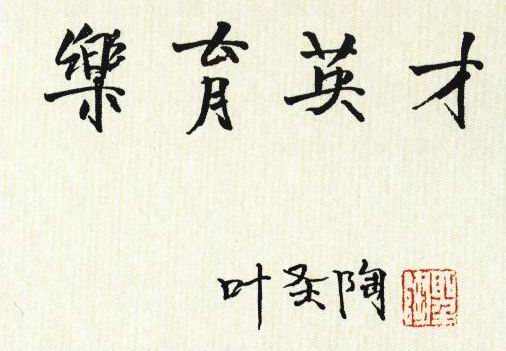 樂育英才
叶圣陶